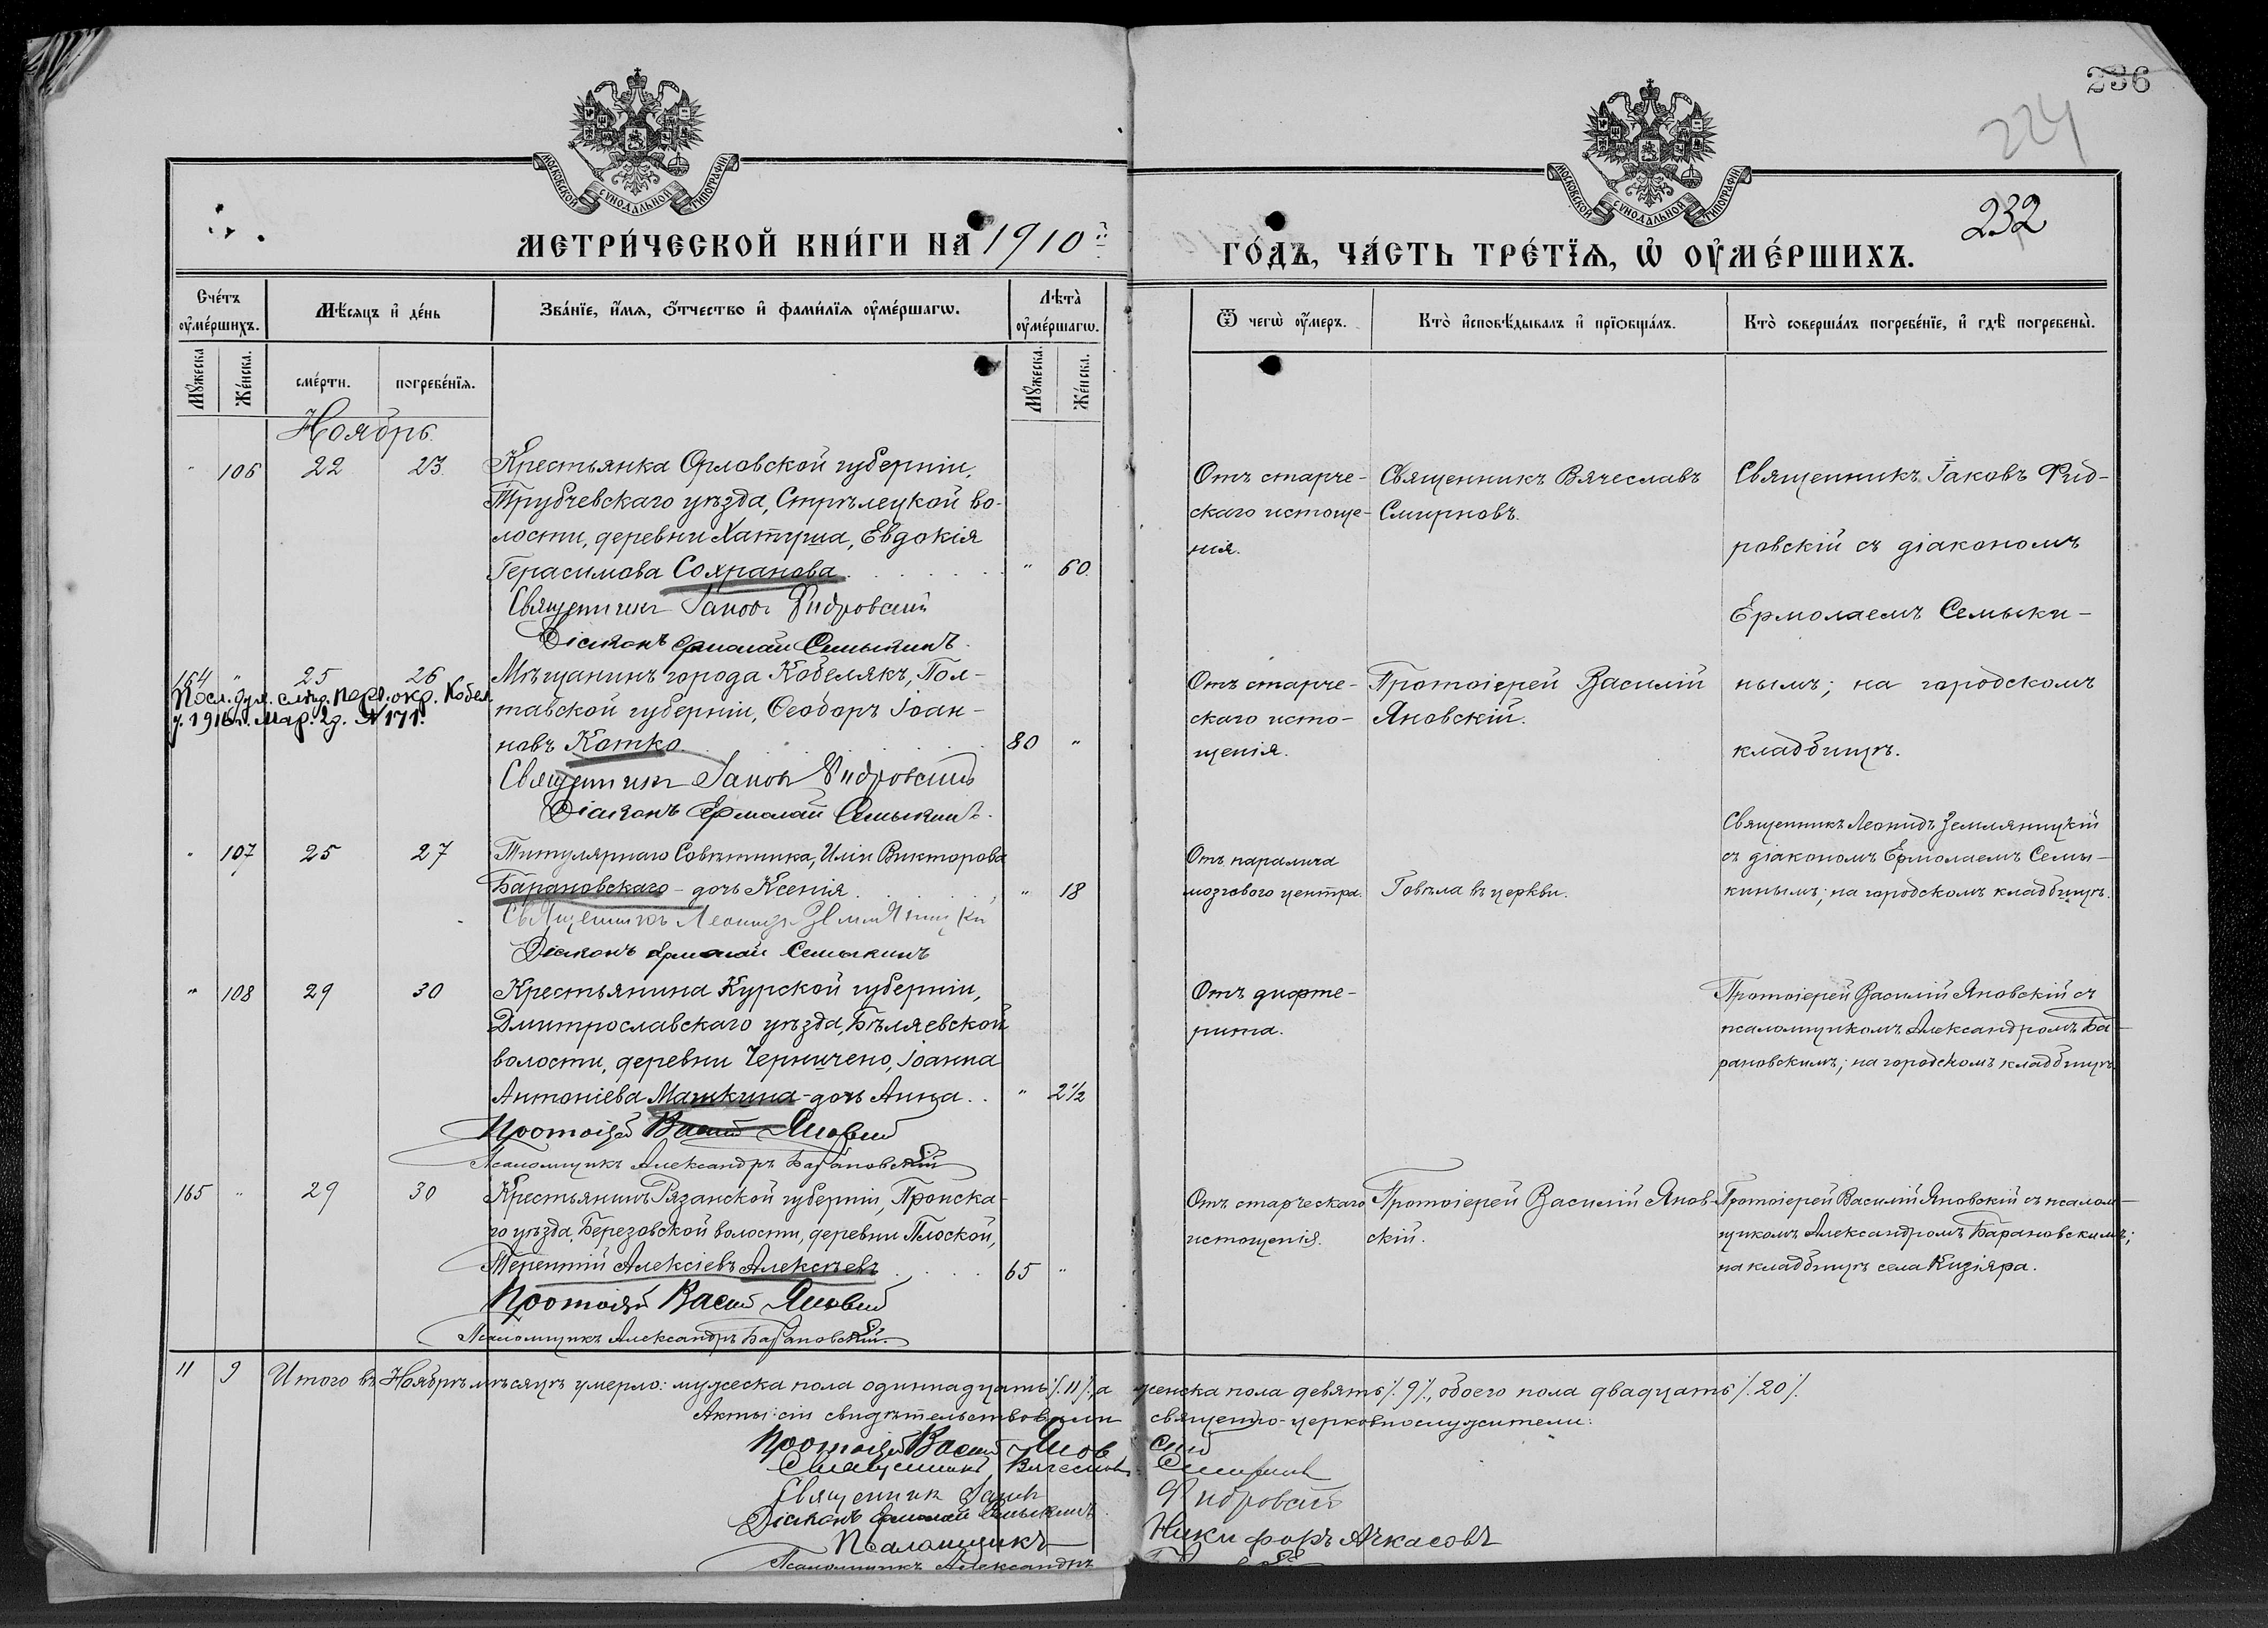 236
224
232
МОСКОВСКОЙ СѴНОДАЛЬНОЙ ТИПОГРАФІИ
МОСКОВСКОЙ СѴНОДАЛЬНОЙ ТИПОГРАФІИ
МЕТРИ́ЧЕСКОЙ КНИ́ГИ НА 1910й
ГО́ДЪ, ЧА́СТЬ ТРЕ́ТЇѦ, Ѡ҆ ОУ҆МЕ́РШИХЪ.
Сче́тъ оу҆ме́ршихъ.
Мѣ́сяцъ и҆ де́нь
Зва́нїе, и҆́мѧ, ѻ҆́тчество и҆ фами́лїѧ оу҆ме́ршагѡ.
Лѣта̀ оу҆ме́ршагѡ.
Ѿ чегѡ̀ оу҆́меръ.
Кто̀ и҆сповѣ́дывалъ и҆ прїѡбща́лъ.
Кто̀ соверша́лъ погребе́нїе, и҆ гдѣ̀ погребены̀.
Мꙋ́жеска
Же́нска.
сме́рти.
погребе́нїѧ.
Мꙋ́жеска.
Же́нска.
Ноябрь.
" 106 22 23
Крестьянка Орловской губерніи,
Трубчевскаго уѣзда, Стрѣлецкой во-
лости, деревни Хатуша, Евдокія
Герасимова Сохранова. " 60.
Священникъ Іаковъ Фидровскій
Діаконъ Ермолай Семыкинъ.
Отъ старче-
скаго истоще-
нія.
Священникъ Вячеславъ
Смирновъ.
Священникъ Іаковъ Фид-
ровскій съ діакономъ
Ермолаемъ Семыки-
нымъ; на городскомъ
кладбищѣ.
164 " 25 26
Мѣщанинъ города Кобелякъ, Пол-
тавской губерніи, Ѳеодоръ Іоан-
новъ Котко. 80 "
Священникъ Іаковъ Фидровскій
Діаконъ Ермолай Семыкинъ.
Отъ старче-
скаго исто-
щенія.
Протоіерей Василій
Яновскій.
" 107 25 27
Титулярнаго Совѣтника, Иліи Викторова
Барановскаго - дочь Ксенія. " 18
Священникъ Леонидъ Земляницкій
Діаконъ Ермолай Семыкинъ
Отъ паралича
мозгового центра.
Говѣла въ церкви.
Священникъ Леонидъ Земляницкій
съ діакономъ Ермолаемъ Семы-
кинымъ; на городскомъ кладбищѣ.
" 108 29 30
Крестьянина Курской губерніи,
Дмитрославскаго уѣзда, Бѣляевской
волости, деревни Черничено, Іоанна
Антоніева Машкина - дочь Анна. . " 2½
Протоіерей Василій Яновскій
Псаломщикъ Александръ Барановскій
Отъ дифте-
рита.
Протоіерей Василій Яновскій съ
псаломщикомъ Александромъ Ба-
рановскимъ; на городскомъ кладбищѣ
165 " 29 30
Крестьянинъ Рязанской губерніи, Пронска-
го уѣзда, Березовской волости, деревни Плоской,
Терентій Алексіевъ Алексѣевъ 65 "
Протоіерей Василій Яновскій
Псаломщикъ Александръ Барановскій.
Отъ старческаго
истощенія.
Протоіерей Василій Янов-
скій.
Протоіерей Василій Яновскій съ псалом-
щикомъ Александромъ Барановскимъ;
на кладбищѣ села Кизіяра.
11 9 Итого въ Ноябрѣ мѣсяцѣ умерло: мужеска пола одиннадцать /. 11 /., а женска пола девять /. 9 /., обоего пола двадцать /. 20 /.
Акты сіи свидѣтельствовали священно-церковнослужители:
Протоіерей Василій Яновскій
Священникъ Вячеславъ Смирновъ
Священникъ Іаковъ Фидровскій
Діаконъ Ермолай Семыкинъ.
Псаломщикъ Никифоръ Ачкасовъ
Псаломщикъ Александръ